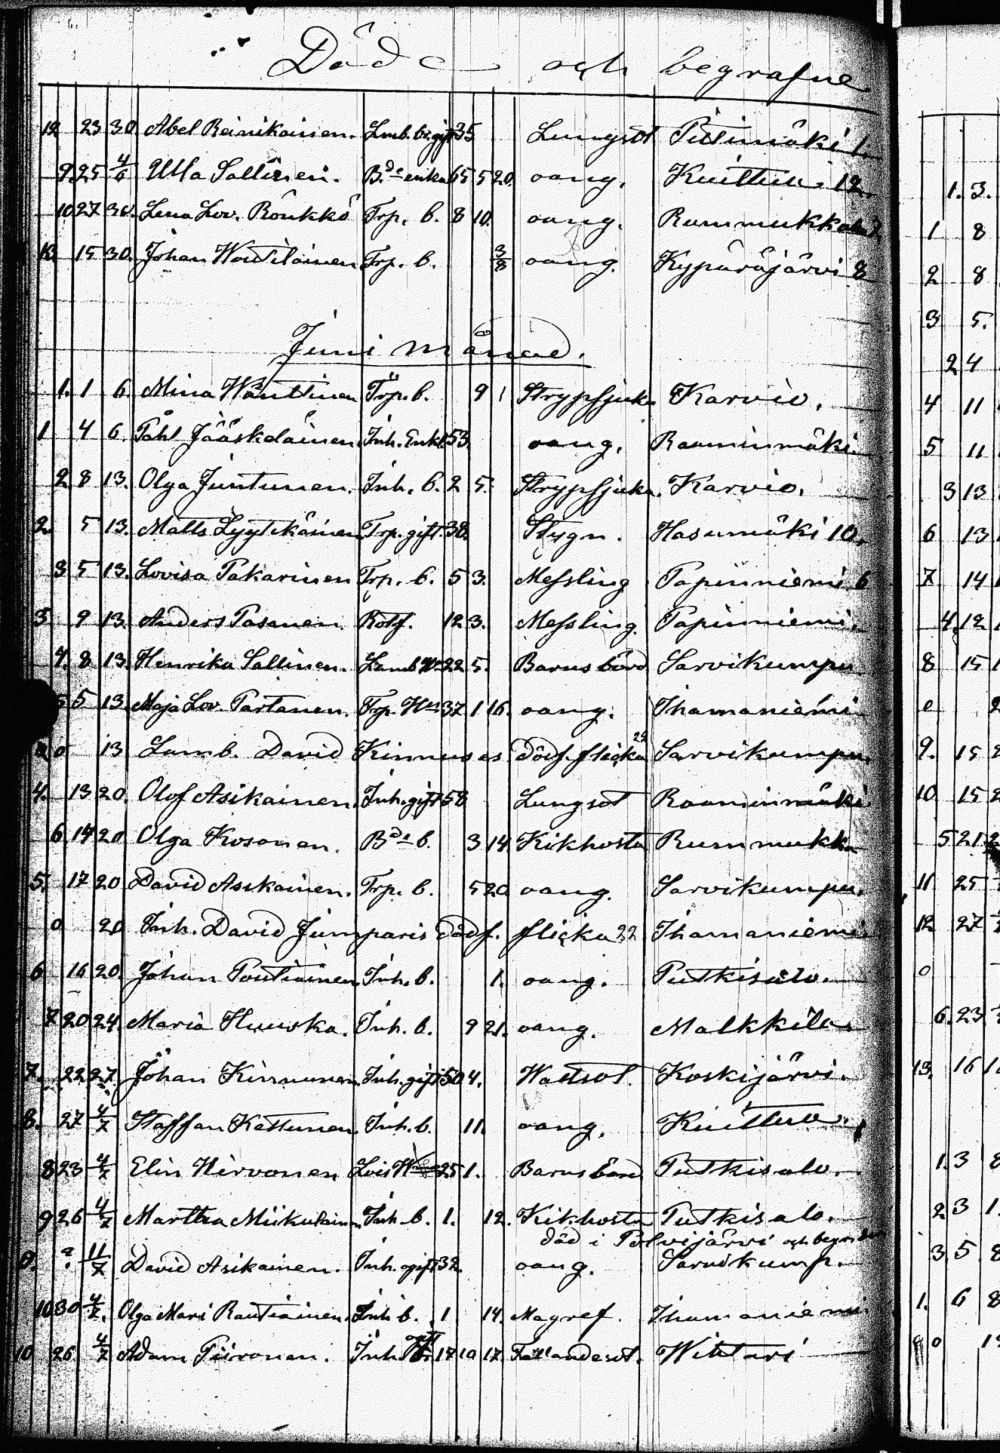 Döde och begrafne
12 23 30. Abel Reinikainen. Lmb. b. gift 35 Lungsot Piilimäki 1.
9 25 4/6 Ulla Sallinen. B.de enka 65 5 20. oang. Kuittua. 12.
10 27 30. Lena Lov. Rönkkö Trp. b. 8 10. oang. Rummukkala
13. 15 30. Johan Woutilainen Trp. b. 3/8 oang. Kypäräjärvi 8
Juni månad.
1. 1 6. Mina Wänttinen Trp. b. 9 1 Strypsjuka Karvio.
1 4 6. Påhl Jääskeläinen Inh. Enkl. 53. oang. Raaminmäki
2 8 13. Olga Juntunen. Inh. b. 2 5. Strypsjuka. Karvio.
2. 5 13. Matts Lyytikäinen Trp. gift. 38. Stygn. Hasumäki 10.
3 5 13. Lovisa Pakarinen Trp. b. 5 3. Messling Papinniemi 6
3. 9 13. Anders Pasanen Rotf. 12 3. Messling. Papinniemi.
4. 8. 13. Henrika Sallinen. Lamb. Hu 22 5. Barnsbörd Sarvikumpu
5 5 13. Maja Lov. Partanen. Trp. Hu 37 1 16. oang. Ihamaniemi
0 13 Lamb. David Kinnuses dödf. flicka 28 Sarvikumpu
4. 13 20. Olof Asikainen. Inh. gift 58 Lungsot Raaminmäki
6. 14 20 Olga Kosonen. B.ds b. 3 14. Kikhosta Rummukka
5. 17 20 David Asikainen. Trp. b. 5 20 oang. Sarvikumpu.
0 20 Inh. David Jumparis dödf. flicka 22 Ihamaniemi
6 16 20. Johan Poutiainen Inh. b. 1. oang. Putkisalo.
7 20 24. Maria Huuska. Inh. b. 9 21. oang. Malkkila
7. 22 27. Johan Kinnunen Inh. gift 50 4. Wattsot. Koskijärvi.
8. 27 4/7 Staffan Kettunen Inh. b. 11. oang. Kuittua.
8 23 4/7 Elin Hirvonen 25 1. Barnsbörd Putkisalo.
9 26 4/7 Martha Miikulainen Inh. b. 1. 12. Kikhosta Putkisalo.
död i Polvijärvi och begrafven
9. ? 11/7 David Asikainen. Inh. ogift 32. oang. Sarvikump.
10 30 4/7. Olga Mari Rautiainen. Inh. b. 1 14. Magref. Ihamaniemi
10 26. 4/7 Adam Piironen. Inh. 17 10 17. Fallandesot. Wihtari
1. 3.
1 8
2 8
3 5.
2 4
4 11
5 11
3 13
6 13
7 14
4. 12
8 15
0
9. 15
10 15
5 21
11 25
12 27
0
6. 23
13. 16
1. 3 8
2 3 1.
3. 5 8
1. 6 8
0